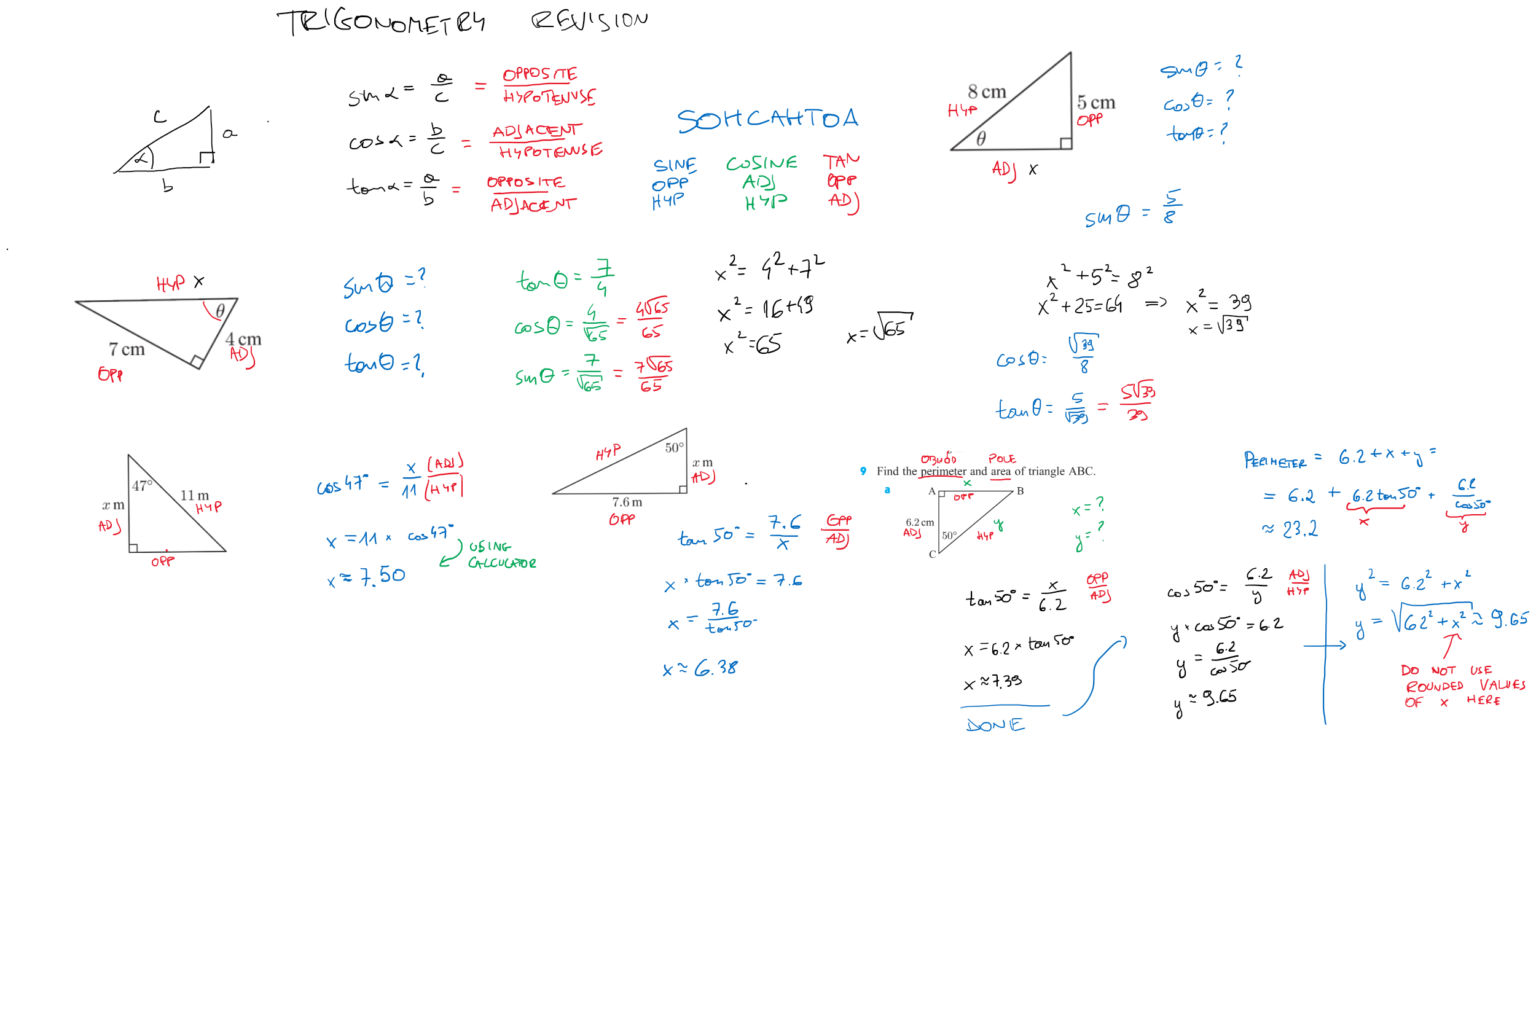 TRIGONOMETRY REVISION
c
a
α
b
sinα = a/c = OPPOSITE/HYPOTENUSE
cosα = b/c = ADJACENT/HYPOTENUSE
tanα = a/b = OPPOSITE/ADJACENT
SOHCAHTOA
SINE COSINE TAN
OPP ADJ OPP
HYP HYP ADJ
8 cm
HYP
5 cm
OPP
θ
ADJ x
sinθ = ?
cosθ = ?
tanθ = ?
sinθ = 5/8
x² + 5² = 8²
x² + 25 = 64 => x² = 39
x = √39
cosθ = √39/8
tanθ = 5/√39 = 5√39/39
HYP x
θ
7 cm
OPP
4 cm
ADJ
sinθ = ?
cosθ = ?
tanθ = ?
tanθ = 7/4
cosθ = 4/√65 = 4√65/65
sinθ = 7/√65 = 7√65/65
x² = 4² + 7²
x² = 16 + 49
x² = 65
x = √65
47°
x m
ADJ
11 m
HYP
OPP
cos47° = x/11 (ADJ)/(HYP)
x = 11 × cos47°
USING
CALCULATOR
x ≈ 7.50
HYP
50°
x m
ADJ
7.6 m
OPP
tan50° = 7.6/x OPP/ADJ
x · tan50° = 7.6
x = 7.6/tan50°
x ≈ 6.38
OBWÓD POLE
9 Find the perimeter and area of triangle ABC.
a
A x B
OPP
6.2 cm
ADJ
50°
y
HYP
C
x = ?
y = ?
tan50° = x/6.2 OPP/ADJ
x = 6.2 × tan50°
x ≈ 7.39
DONE
cos50° = 6.2/y ADJ/HYP
y · cos50° = 6.2
y = 6.2/cos50
y ≈ 9.65
PERIMETER = 6.2 + x + y =
= 6.2 + 6.2 tan50° + 6.2/cos50°
x y
≈ 23.2
y² = 6.2² + x²
y = √6.2² + x² ≈ 9.65
DO NOT USE
ROUNDED VALUES
OF x HERE